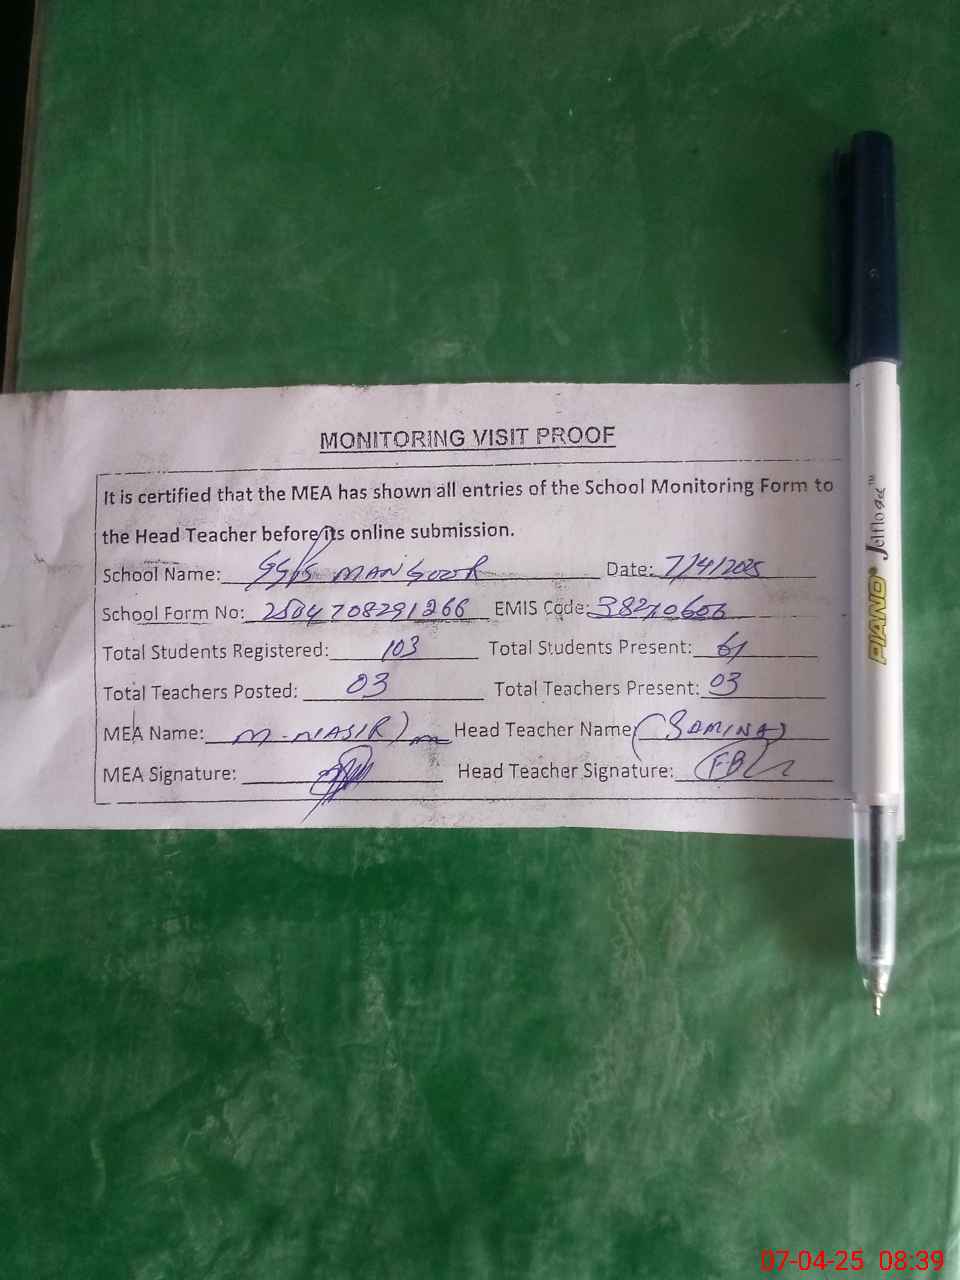 MONITORING VISIT PROOF
It is certified that the MEA has shown all entries of the School Monitoring Form to
the Head Teacher before its online submission.
School Name: MANGOOR Date: 7/4/2025
School Form No: 2504708291266 EMIS Code: 38210606
Total Students Registered: 103 Total Students Present: 61
Total Teachers Posted: 03 Total Teachers Present: 03
MEA Name: M. NASIR) Head Teacher Name (SAMINA)
MEA Signature: Head Teacher Signature:
PIANO Jellosa™
07-04-25 08:39